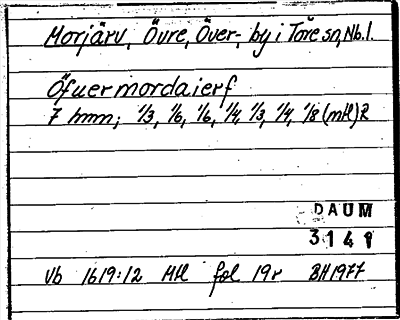 Morjärv, Övre, Över- by i Töre sn, Nb.l.
Öfuermordaierf
7 hmn; 1/3, 1/6, 1/6, 1/4, 1/3, 1/4, 1/8 (mtl) R
DAUM
3141
Vb 1619:12 Mtl fol 19r BH1977